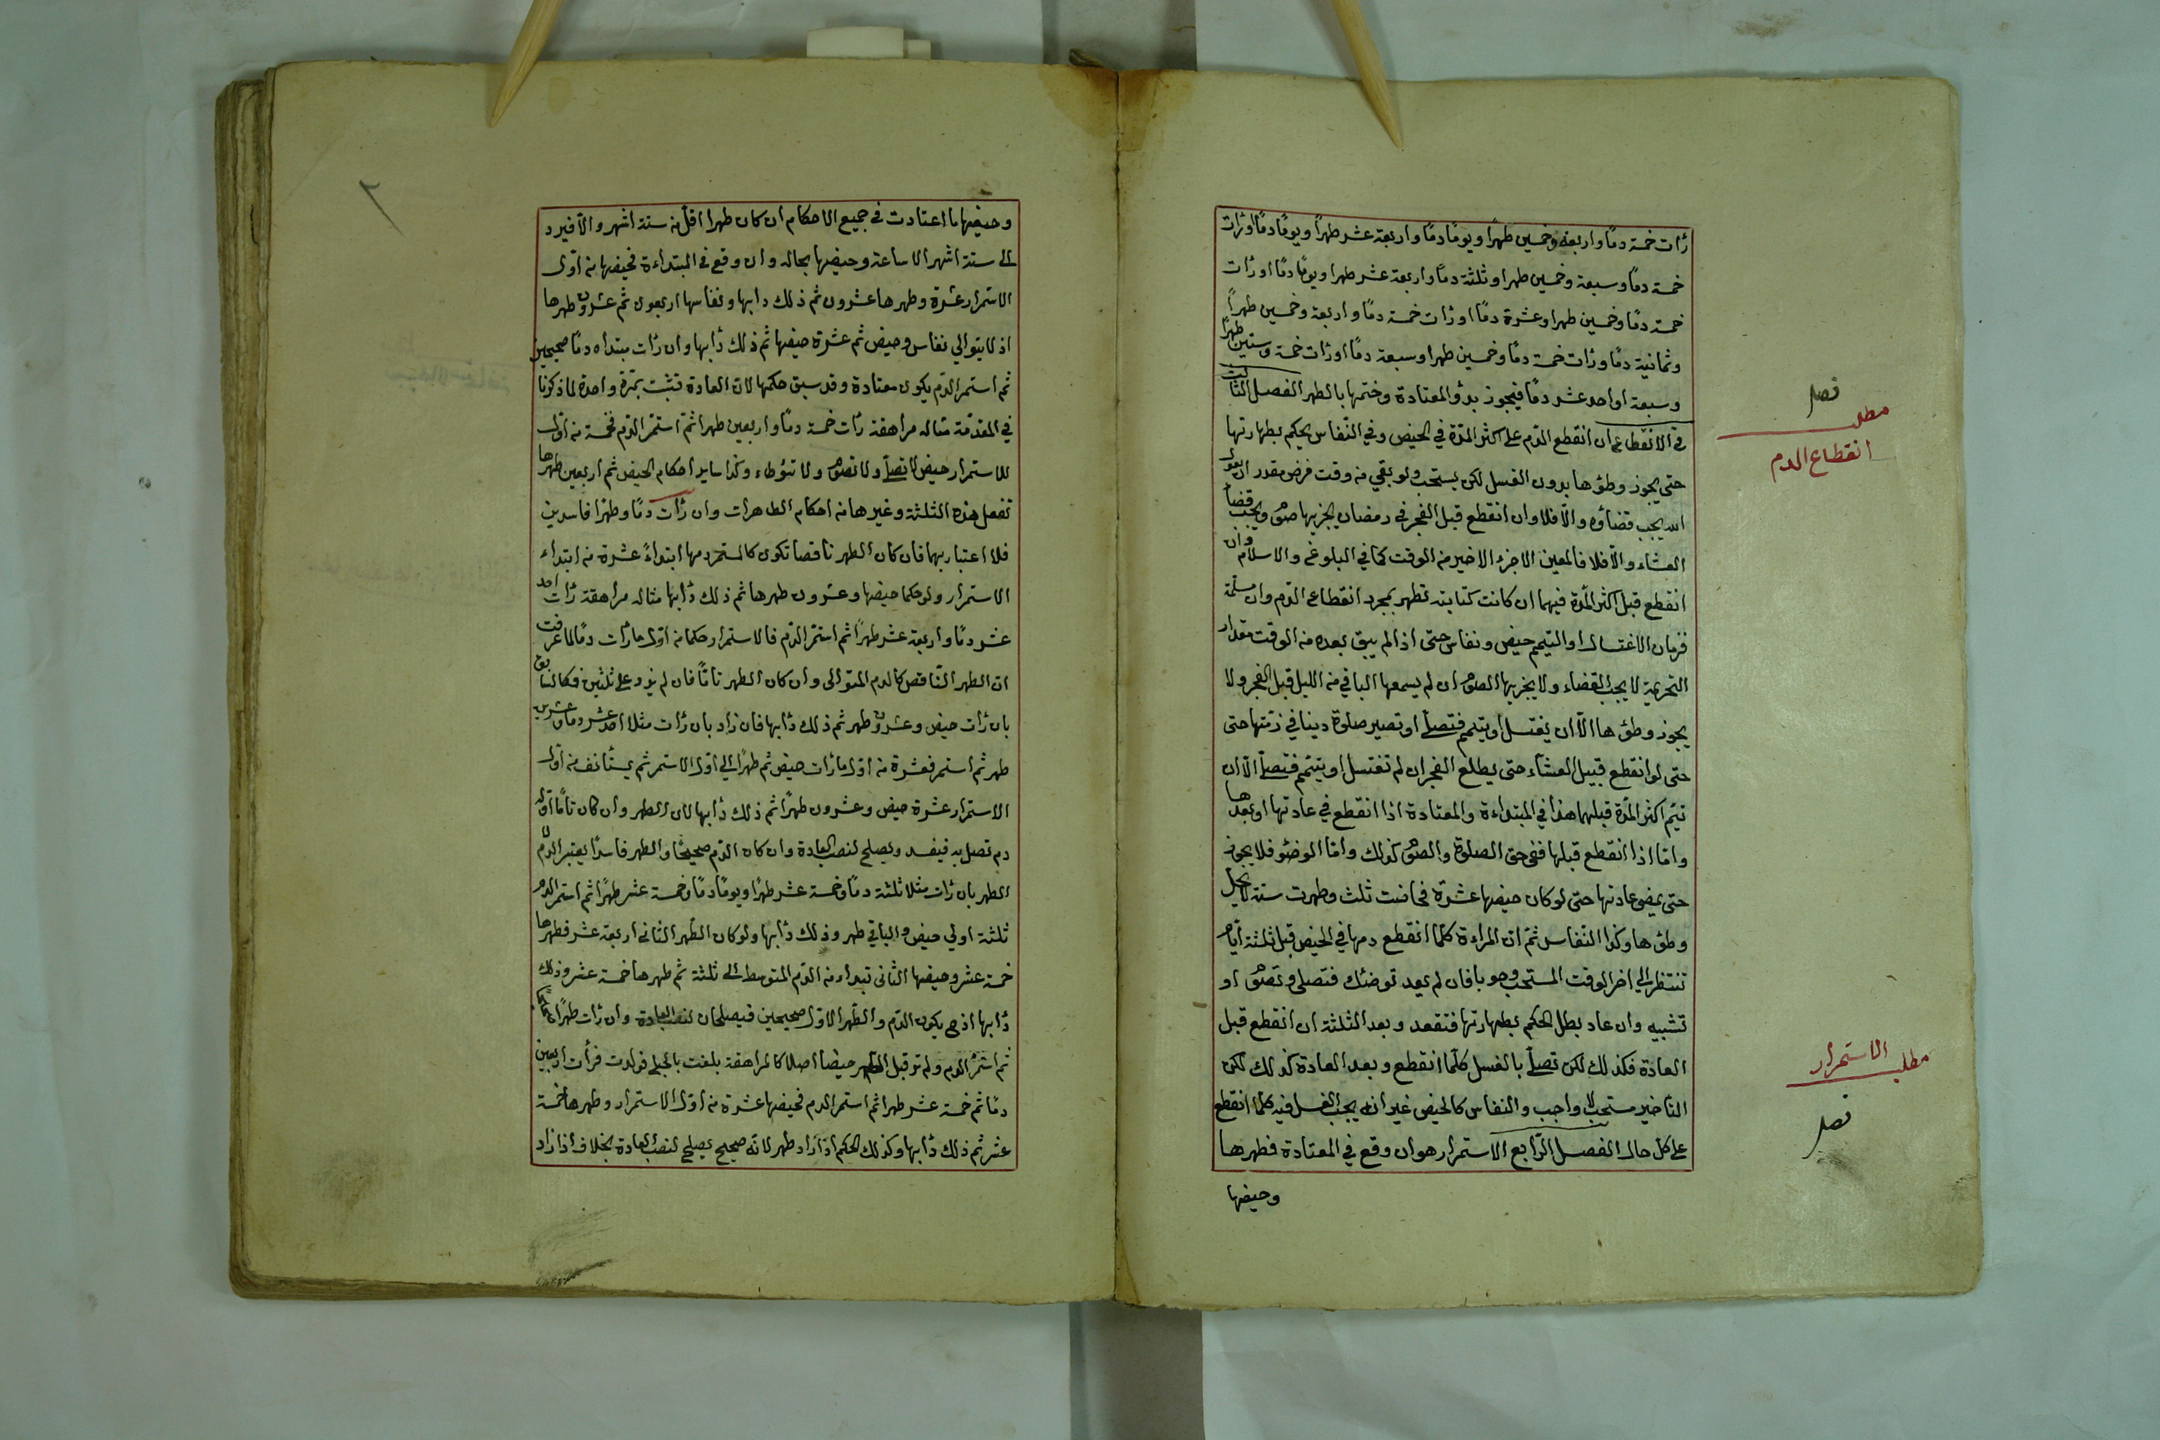 رأت خمسة دمًا واربعة وخمسين طهراً ويومًا دمًا واربعة عشر طهراً ويومًا دمًا او رأت
خمسة دمًا وسبعة وخمسين طهرا وثلثة دمًا واربعة عشر طهرا ويومًا دمًا او رأت
خمسة دمًا وخمسين طهرا وعشرة دمًا او رأت خمسة دمًا واربعة وخمسين طهراً
وثمانية دمًا ورأت خمسة دمًا وخمسين طهرا وسبعة دمًا او رأت خمسة وستين طهراً
وسبعة او احد عشر دمًا فيجوز بدؤ المعتادة وختمها بالطهر الفصل الثالث
فصل
مطلب
انقطاع الدم
في الانقطاع ان انقطع الدم على اكثر المدّة في الحيض وفي النّفاس يحكم بطهارتها
حتى يجوز وطؤها بدون الغسل لكن يستحب ولو بقي من وقت فرض مقدر ان يقول
الله يجب قضاؤه والّا فلا وان انقطع قبل الفجر في رمضان يجزيها صوم ويجب قضأ
العشاء والّا فلا فالمعين الاجزء الاخير من الوقت كما في البلوغ والاسلام وان
انقطع قبل اكثر المدّة فيهما ان كانت كتابية تطهر بمجرد انقطاع الدم وان مسلمة
فزمان الاغتسال او التيمم حيض ونفاس حتى اذا لم يبق بعده من الوقت مقدار
التحريمة لا يجب القضاء ولا يجزيها الصوم ان لم يسعها الباقي من الليل قبل الفجر ولا
يجوز وطؤها الّا ان يغتسل او يتيمم فتصلّ او تصير صلوة دينا في ذمّتها حتى
حتى لو انقطع قبيل العشاء حتى يطلع الفجر ان لم تغتسل او يتيمم فتصلّ الّا ان
تيم اكثر المدّة قبلهما هذا في المبتداءة والمعتادة اذا انقطع في عادتها او بعدها
وامّا اذا انقطع قبلها ففي حق الصلوة والصوم كذلك وامّا الوضؤ فلا يجوز
حتى يمضى عادتها حتى لو كان حيضها عشرة فحاضت ثلث وطهرت ستة لا يحل
وطؤها وكذا النّفاس ثم ان المراءة كلّما انقطع دمها في الحيض قبل ثلثة أيّام
تنتظر الي اخر الوقت المستحب وجوبا فان لم يعد توضئك فتصلي وتصوم او
تشبيه وان عاد بطل الحكم بطهارتها فتقعد وبعد الثلثة ان انقطع قبل
العادة فكذلك لكن تصلّ بالغسل كلّما انقطع وبعد العادة كذلك لكن
مطلب الاستمرار
فصل
التاخير مستحب لا واجب والنفاس كالحيض غير انه يجب الغسل فيه كلما انقطع
على كل حال الفصل الرّابع الاستمرار هو ان وقع في المعتادة فطهرها
وحيضها
٦
وحيضها ما اعتادت في جميع الاحكام ان كان طهرا اقل من ستة اشهر والّا فيرد
الى ستة اشهر الا ساعة وحيضها بحاله وان وقع في المبتداءة فحيضها من اوّل
الاستمرار عشرة وطهرها عشرون ثم ذلك دابها ونفاسها اربعون ثم عشرون طهرها
اذ لا يتوالي نفاس وحيض ثم عشرة حيضها ثم ذلك دأبها وان رأت مبتداه دمًا صحيحين
ثم استمر الدّم يكون معتادة وقد سبق حكمها لان العادة تثبت بمرّة واحدة لما ذكرنا
في المقدمة مثاله مراهقة رأت خمسة دمًا واربعين طهرا ثم استمر الدّم فخمسة من اوّل
للاستمرار حيض لا تصلّ ولا تصوم ولا تؤطاء وكذا ساير احكام الحيض ثم اربعين طهرها
تفعل هذه الثلثة وغيرها من احكام الطاهرات وان رأت دمًا وطهرا فاسدين
فلا اعتبار بهما فان كان الطهر ناقصا تكون كالمستمر دمها ابتداءً عشرة من ابتداء
الاستمرار ولو حكما حيضها وعشرون طهرها ثم ذلك دأبها مثاله مراهقة رأت احد
عشر دمًا واربعة عشر طهرًا ثم استمر الدّم فالاستمرار حكما من اوّل ما رأت دمًا لما عرفت
ان الطهر النّاقص كالدم المتوالى وان كان الطهر تامًّا فان لم يزد على ثلثين فكالسّابق
بان رأت حيض وعشرون طهر ثم ذلك دأبها فان زاد بان رأت مثلا احد عشر دمًا وعشرين
طهر ثم استمر فعشرة من اوّل ما رأت حيض ثم طهرًا الي اوّل الاستمر ثم يستأنف من اوّل
الاستمرار عشرة حيض وعشرون طهرًا ثم ذلك دأبها لان الطهر وان كان تامًّا اوّله
دم تصلّ به فيفسد ويصلح لنصب العادة وان كان الدّم صحيحًا والطهر فاسدًا يعتبر الدّم لا
الطهر بان رأت مثلا ثلثة دمًا وخمسة عشر طهرًا ويومًا دمًا وخمسة عشر طهرًا ثم استمر الدم
ثلثة اولي حيض والباقي طهر وذلك دأبها ولو كان الطهر الثاني اربعة عشر فطهرها
خمسة عشر وحيضها الثانى تبداء من الدّم المتوسط الى ثلثة ثم طهرها خمسة عشر وذلك
دأبها اذ ح يكون الدّم والطّهر الاوّل صحيحين فيصلحان لنصب العادة وان رأت طهرًا
ثم استمرّ الدم ولم تر قبل الطهر حيضًا اصلا كالمراهقة بلغت بالحبل فولدت فرأت اربعين
دمًا ثم خمسة عشر طهرا ثم استمر الدم فحيضها عشرة من اوّل الاستمرار وطهرها خمسة
عشر ثم ذلك دأبها وكذلك الحكم اذا زاد طهر لانّه صحيح يصلح لنصب العادة بخلاف اذا زاد